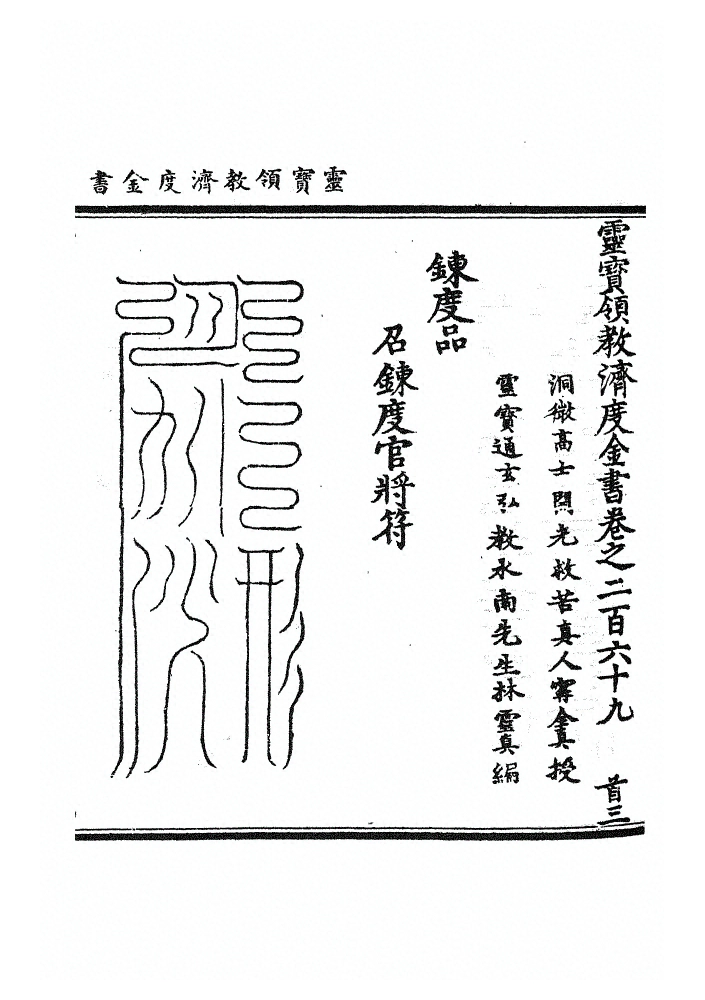 靈寶領教濟度金書
靈寶領教濟度金書卷之二百六十九 首三
洞微高士開光救苦真人寗全真授
靈寶通玄弘教水南先生林靈真編
鍊度品
召鍊度官將符